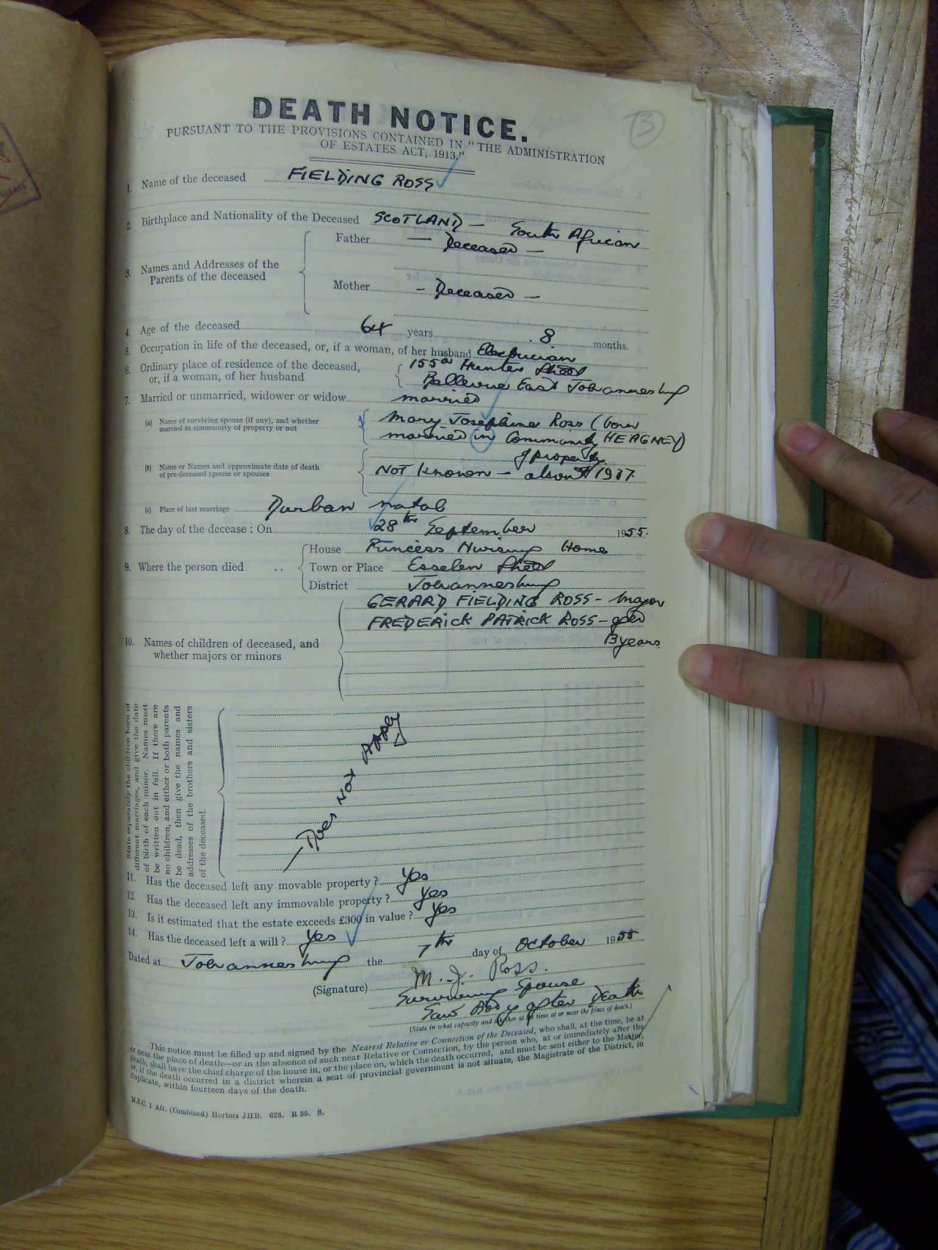 DEATH NOTICE.
PURSUANT TO THE PROVISIONS CONTAINED IN "THE ADMINISTRATION
OF ESTATES ACT, 1913."
13
1. Name of the deceased FIELDING ROSS
2. Birthplace and Nationality of the Deceased SCOTLAND — South African
3. Names and Addresses of the Parents of the deceased
Father — Deceased —
Mother - Deceased -
4. Age of the deceased 64 years 8 months.
5. Occupation in life of the deceased, or, if a woman, of her husband Electrician
6. Ordinary place of residence of the deceased, or, if a woman, of her husband
155a Hunter Street
Bellevue East Johannesburg
7. Married or unmarried, widower or widow married
(a) Name of surviving spouse (if any), and whether married in community of property or not
Mary Josephine Ross (born
married in Community HEAGNEY)
of property
(b) Name or Names and approximate date of death of pre-deceased spouse or spouses
NOT Known — about 1937
(c) Place of last marriage Durban Natal
8. The day of the decease : On 28th September 1955.
9. Where the person died ..
House Princess Nursing Home
Town or Place Esselen Street
District Johannesburg
10. Names of children of deceased, and whether majors or minors
GERARD FIELDING ROSS - major
FREDERICK PATRICK ROSS - aged
13 years
State separately the children born of
different marriages, and give the date
of birth of each minor. Names must
be written out in full. If there are
no children, and either or both parents
be dead, then give the names and
addresses of the brothers and sisters
of the deceased.
— Does NOT APPLY
11. Has the deceased left any movable property ? Yes
12. Has the deceased left any immovable property ? Yes
13. Is it estimated that the estate exceeds £300 in value ? Yes
14. Has the deceased left a will ? Yes
Dated at Johannesburg the 7th day of October 1955
(Signature) M. J. Ross.
Surviving Spouse
Saw Body after Death
(State in what capacity and whether at the time at or near the place of death.)
This notice must be filled up and signed by the Nearest Relative or Connection of the Deceased, who shall, at the time, be at
or near the place of death—or in the absence of such near Relative or Connection, by the person who, at or immediately after the
death, shall have the chief charge of the house in, or the place on, which the death occurred, and must be sent either to the Master,
or, if the death occurred in a district wherein a seat of provincial government is not situate, the Magistrate of the District, in
duplicate, within fourteen days of the death.
1 Aft. (Combined) Hortors JHB. 628. B 35. S.